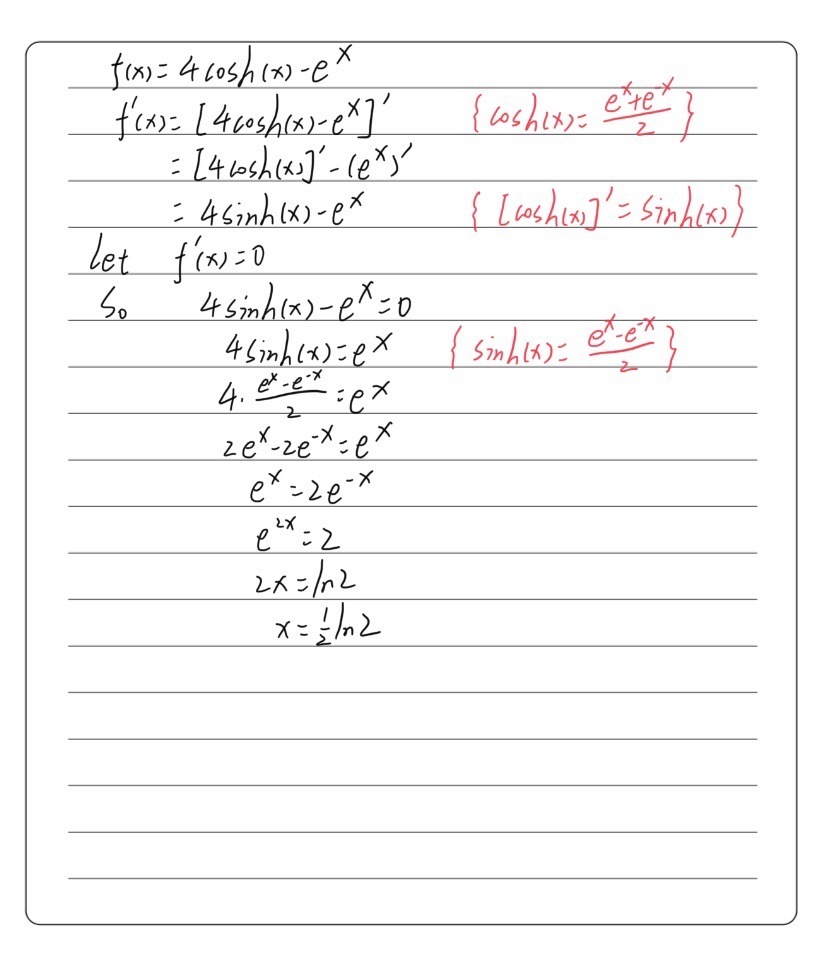 f(x) = 4cosh(x) - e^x
f'(x) = [4cosh(x) - e^x]' { cosh(x) = (e^x + e^-x)/2 }
= [4cosh(x)]' - (e^x)'
= 4sinh(x) - e^x { [cosh(x)]' = sinh(x) }
let f'(x) = 0
So 4sinh(x) - e^x = 0
4sinh(x) = e^x { sinh(x) = (e^x - e^-x)/2 }
4 · (e^x - e^-x)/2 = e^x
2e^x - 2e^-x = e^x
e^x = 2e^-x
e^2x = 2
2x = ln2
x = 1/2 ln2